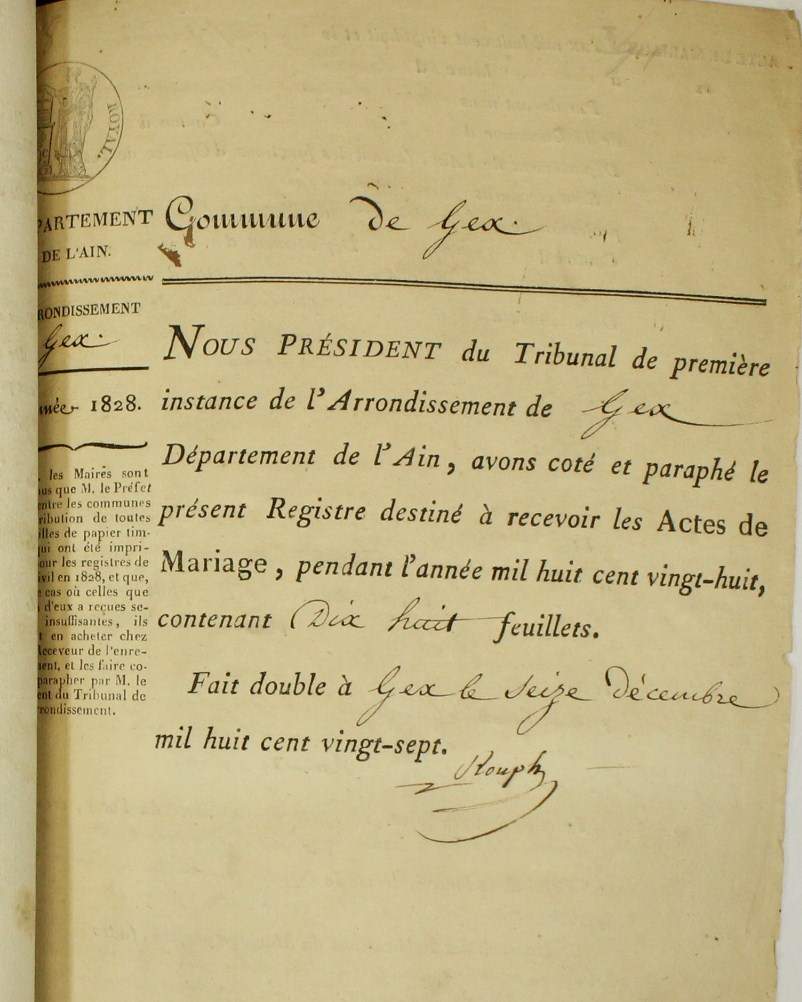 ROYAL.
PARTEMENT
DE L'AIN.
Commune De Gex.
RONDISSEMENT
Gex.
née 1828.
les Maires sont
us que M. le Préfet
entre les communes
ribution de toutes
illes de papier tim-
qui ont été impri-
our les registres de
ivil en 1828, et que,
cas où celles que
d'eux a reçues se-
insuffisantes, ils
t en acheter chez
eceveur de l'enre-
ent, et les faire co-
parapher par M. le
ent du Tribunal de
rondissement.
NOUS PRÉSIDENT du Tribunal de première
instance de l'Arrondissement de Gex
Département de l'Ain, avons coté et paraphé le
présent Registre destiné à recevoir les Actes de
Mariage, pendant l'année mil huit cent vingt-huit,
contenant Dix huit feuillets.
Fait double à Gex le Seize Décembre
mil huit cent vingt-sept.